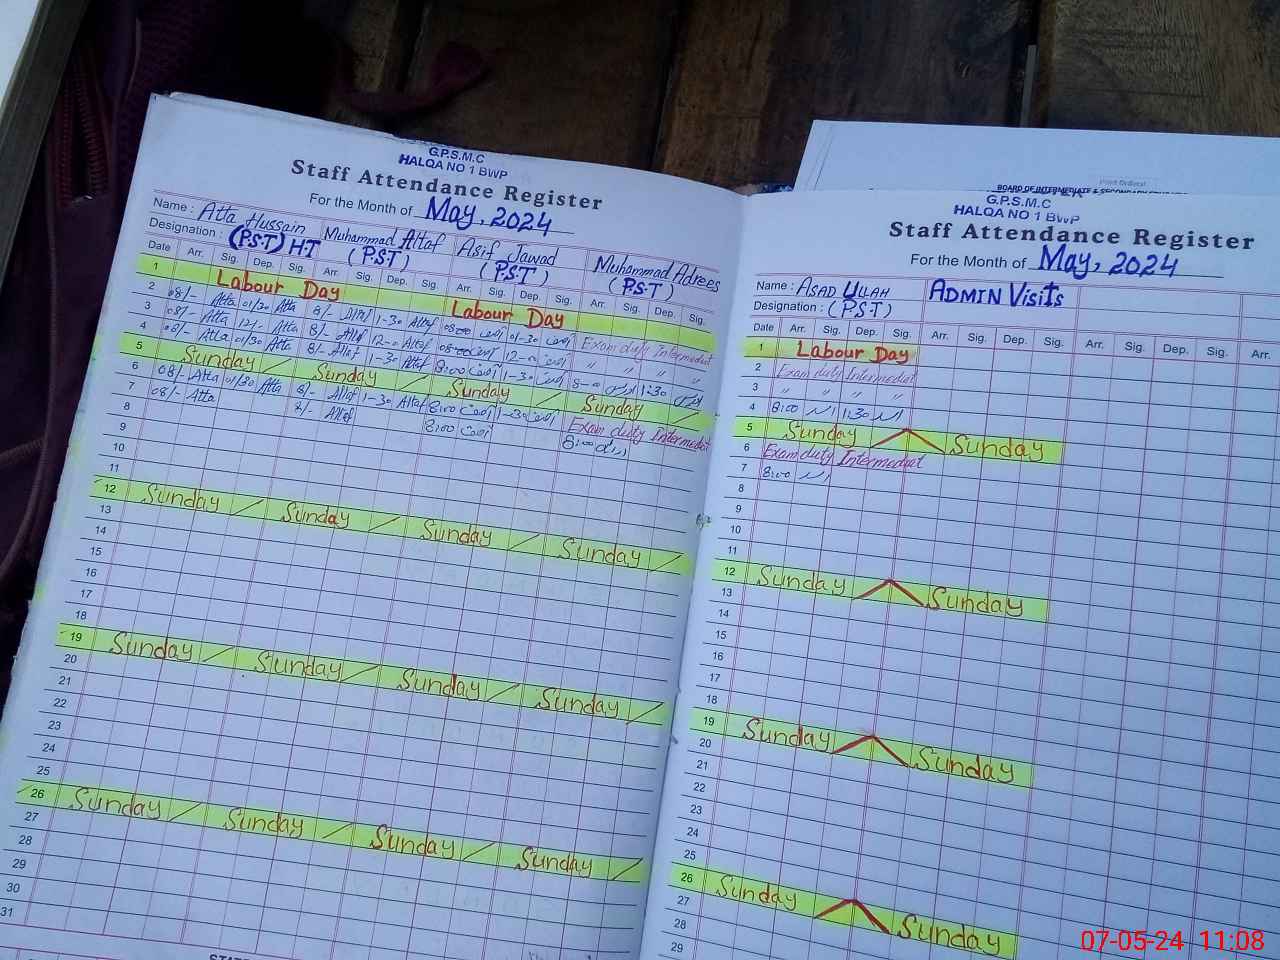 G.P.S.M.C
HALQA NO 1 BWP
Staff Attendance Register
For the Month of May, 2024
Name : Atta Hussain Muhammad Altaf Asif Jawad Muhammad Adrees
Designation : (P.S.T) H.T (P.S.T) (P.S.T) (P.S.T)
Date Arr. Sig. Dep. Sig. Arr. Sig. Dep. Sig. Arr. Sig. Dep. Sig. Arr. Sig. Dep. Sig.
1 Labour Day Labour Day
2 08/- Atta 01/30 Atta 8/- Altaf 1-30 Altaf 08-00 آصف 01-30 آصف Exam duty Intermediat
3 08/- Atta 12/- Atta 8/- Altaf 12-0 Altaf 08-00 آصف 12-0 آصف " " " "
4 08/- Atta 01/30 Atta 8/- Altaf 1-30 Altaf 8:00 آصف 1-30 آصف 8-00 ادریس 1:30 ادریس
5 Sunday Sunday Sunday Sunday
6 08/- Atta 01/30 Atta 8/- Altaf 1-30 Altaf 8:00 آصف 1-30 آصف Exam duty Intermediat
7 08/- Atta 8/- Altaf 8:00 آصف 8:00 ادریس
8
9
10
11
12 Sunday Sunday Sunday Sunday
13
14
15
16
17
18
19 Sunday Sunday Sunday Sunday
20
21
22
23
24
25
26 Sunday Sunday Sunday Sunday
27
28
29
30
31
BOARD OF INTERMEDIATE & SECONDARY
G.P.S.M.C
HALQA NO 1 BWP
Staff Attendance Register
For the Month of May, 2024
Name : ASAD ULLAH ADMIN Visits
Designation : (P.S.T)
Date Arr. Sig. Dep. Sig. Arr. Sig. Dep. Sig. Arr. Sig. Dep. Sig. Arr.
1 Labour Day
2 Exam duty Intermediat
3 " " "
4 8:00 1:30
5 Sunday Sunday
6 Exam duty Intermediat
7 8:00
8
9
10
11
12 Sunday Sunday
13
14
15
16
17
18
19 Sunday Sunday
20
21
22
23
24
25
26 Sunday Sunday
27
28
29
07-05-24 11:08